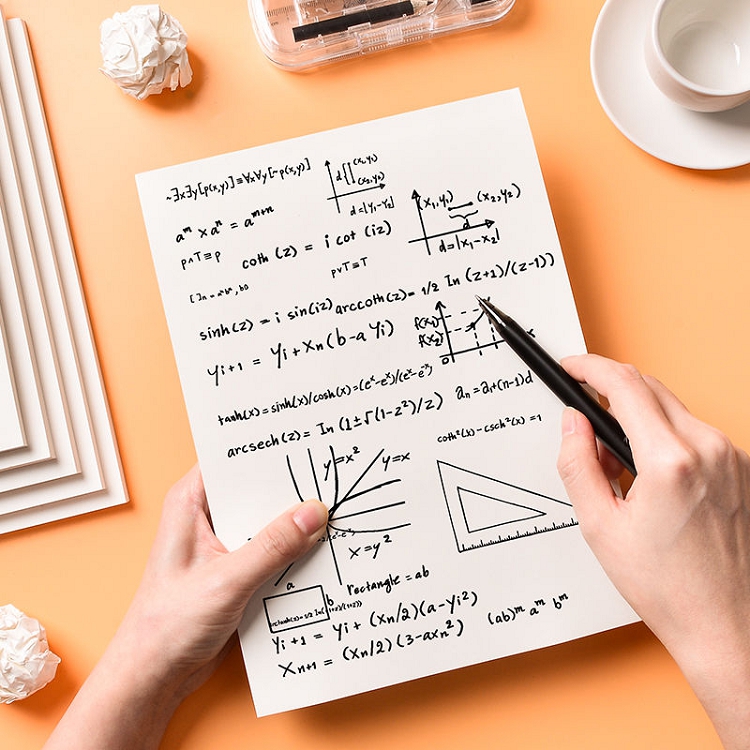 ~∃x∃y[p(x,y)]≡∀x∀y[~p(x,y)]
d (x₁,y₁)
(x₂,y₂)
d=|y₁-y₂|
aᵐ xaⁿ = aᵐ⁺ⁿ
(x₁,y₁) (x₂,y₂)
d
d=|x₁-x₂|
p∧T≡p
coth (z) = i cot (iz)
p∨T≡T
sinh(z) = i sin(iz)
arccoth(z)= 1/2 In (z+1)/(z-1))
yᵢ₊₁ = yᵢ+xn(b-a yᵢ)
f(x₁)
f(x₂)
0
x
tanh(x)=sinh(x)/cosh(x)=(eˣ-eˣ)/(eˣ-eˣ)
aₙ=a₁+(n-1)d
arcsech(z)= In (1±√(1-z²)/z)
coth²(x)-csch²(x) =1
y=x²
y=x
x=y²
a
b
rectangle = ab
yᵢ+1 = yᵢ+ (xn/2)(a-yᵢ²)
(ab)ᵐ aᵐ bᵐ
Xₙ₊₁ = (xn/2)(3-axn²)